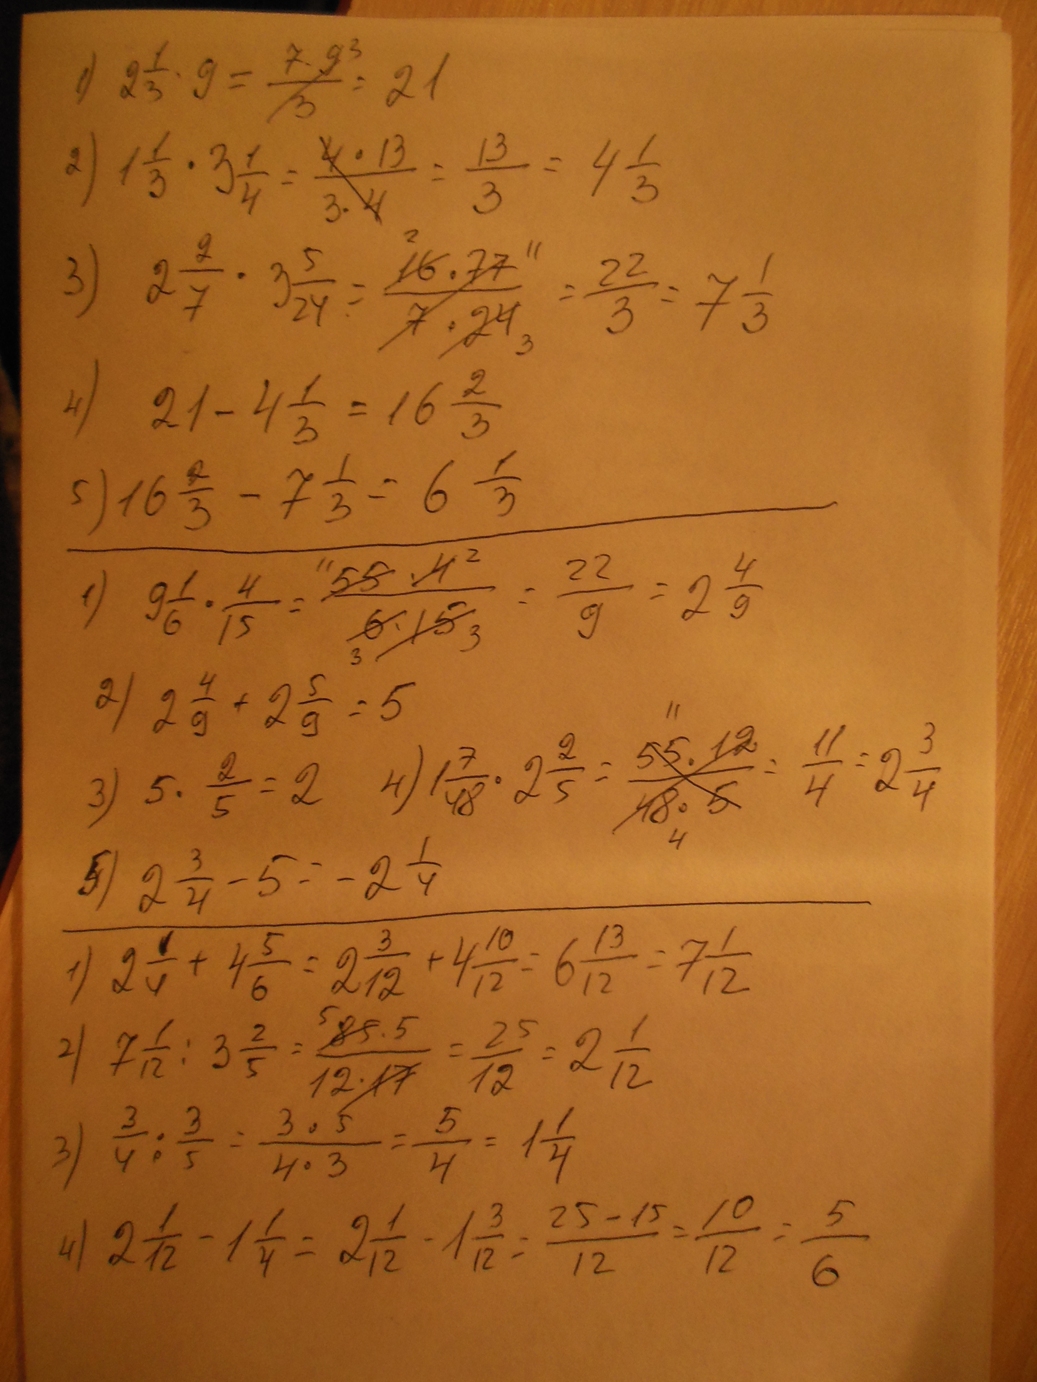 1) 2 1/3 · 9 = 7·9 3/3 = 21
2) 1 1/3 · 3 1/4 = 4·13/3·4 = 13/3 = 4 1/3
3) 2 2/7 · 3 5/24 = 2 16·77 11/7·24 3 = 22/3 = 7 1/3
4) 21 - 4 1/3 = 16 2/3
5) 16 2/3 - 7 1/3 = 6 1/3
1) 9 1/6 · 4/15 = 11 55·4 2/3 6·15 3 = 22/9 = 2 4/9
2) 2 4/9 + 2 5/9 = 5
3) 5 · 2/5 = 2 4) 1 7/48 · 2 2/5 = 11 55·12/48·5 4 = 11/4 = 2 3/4
5) 2 3/4 - 5 = -2 1/4
1) 2 1/4 + 4 5/6 = 2 3/12 + 4 10/12 = 6 13/12 = 7 1/12
2) 7 1/12 : 3 2/5 = 5 85·5/12·17 = 25/12 = 2 1/12
3) 3/4 : 3/5 = 3·5/4·3 = 5/4 = 1 1/4
4) 2 1/12 - 1 1/4 = 2 1/12 - 1 3/12 = 25-15/12 = 10/12 = 5/6